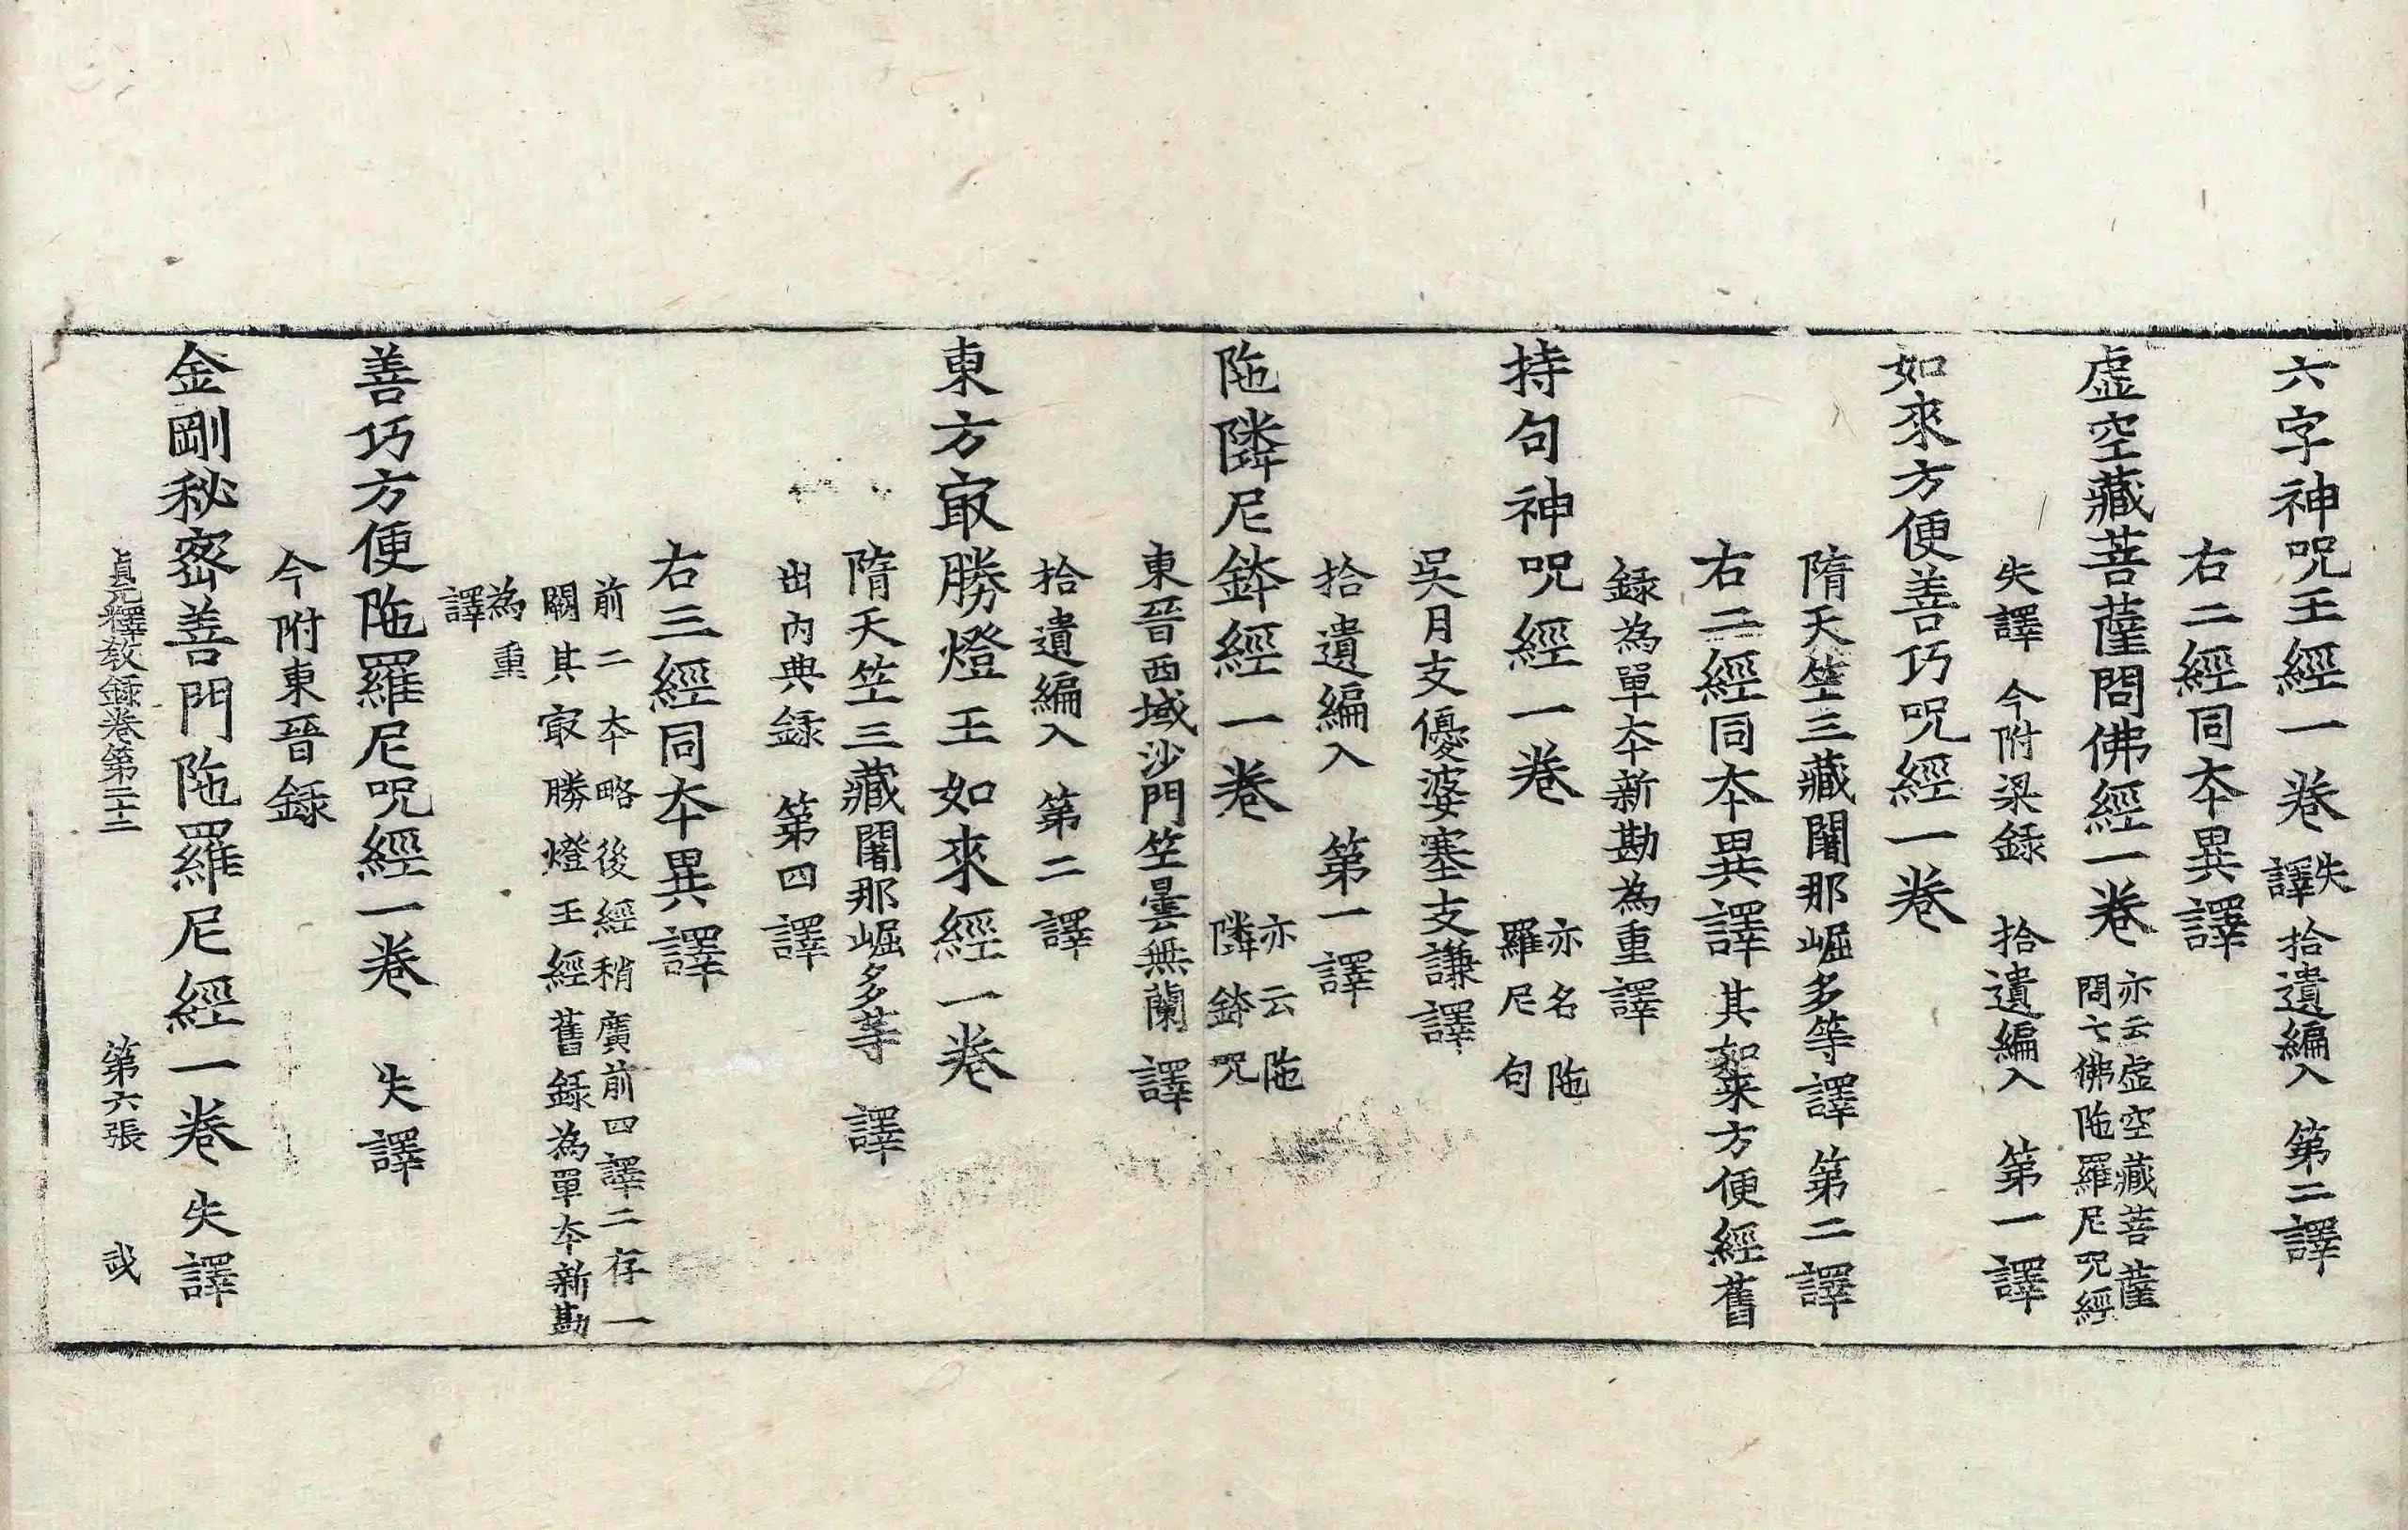 六字神呪王經一卷 失譯 拾遺編入 第二譯
右二經同夲異譯
虛空藏菩薩問佛經一卷 亦云虛空藏菩薩問七佛陁羅尼呪經
失譯 今附梁錄 拾遺編入 第一譯
如來方便善巧呪經一卷
隋天竺三藏闍那崛多等譯 第二譯
右二經同夲異譯 其如來方便經舊
錄為單夲新勘為重譯
持句神呪經一卷 亦名陁羅尼句
吳月支優婆塞支謙譯
拾遺編入 第一譯
陁隣尼鉢經一卷 亦云陁隣鉢呪
東晉西域沙門竺曇無蘭譯
拾遺編入 第二譯
東方㝡勝燈王如來經一卷
隋天竺三藏闍那崛多等譯
出內典錄 第四譯
右三經同夲異譯
前二夲略後經稍廣前四譯二存一
闕其㝡勝燈王經舊錄為單夲新勘
為重
譯
善巧方便陁羅尼呪經一卷 失譯
今附東晉錄
金剛秘密善門陁羅尼經一卷 失譯
貞元釋教錄卷第二十二 第六張 㦯